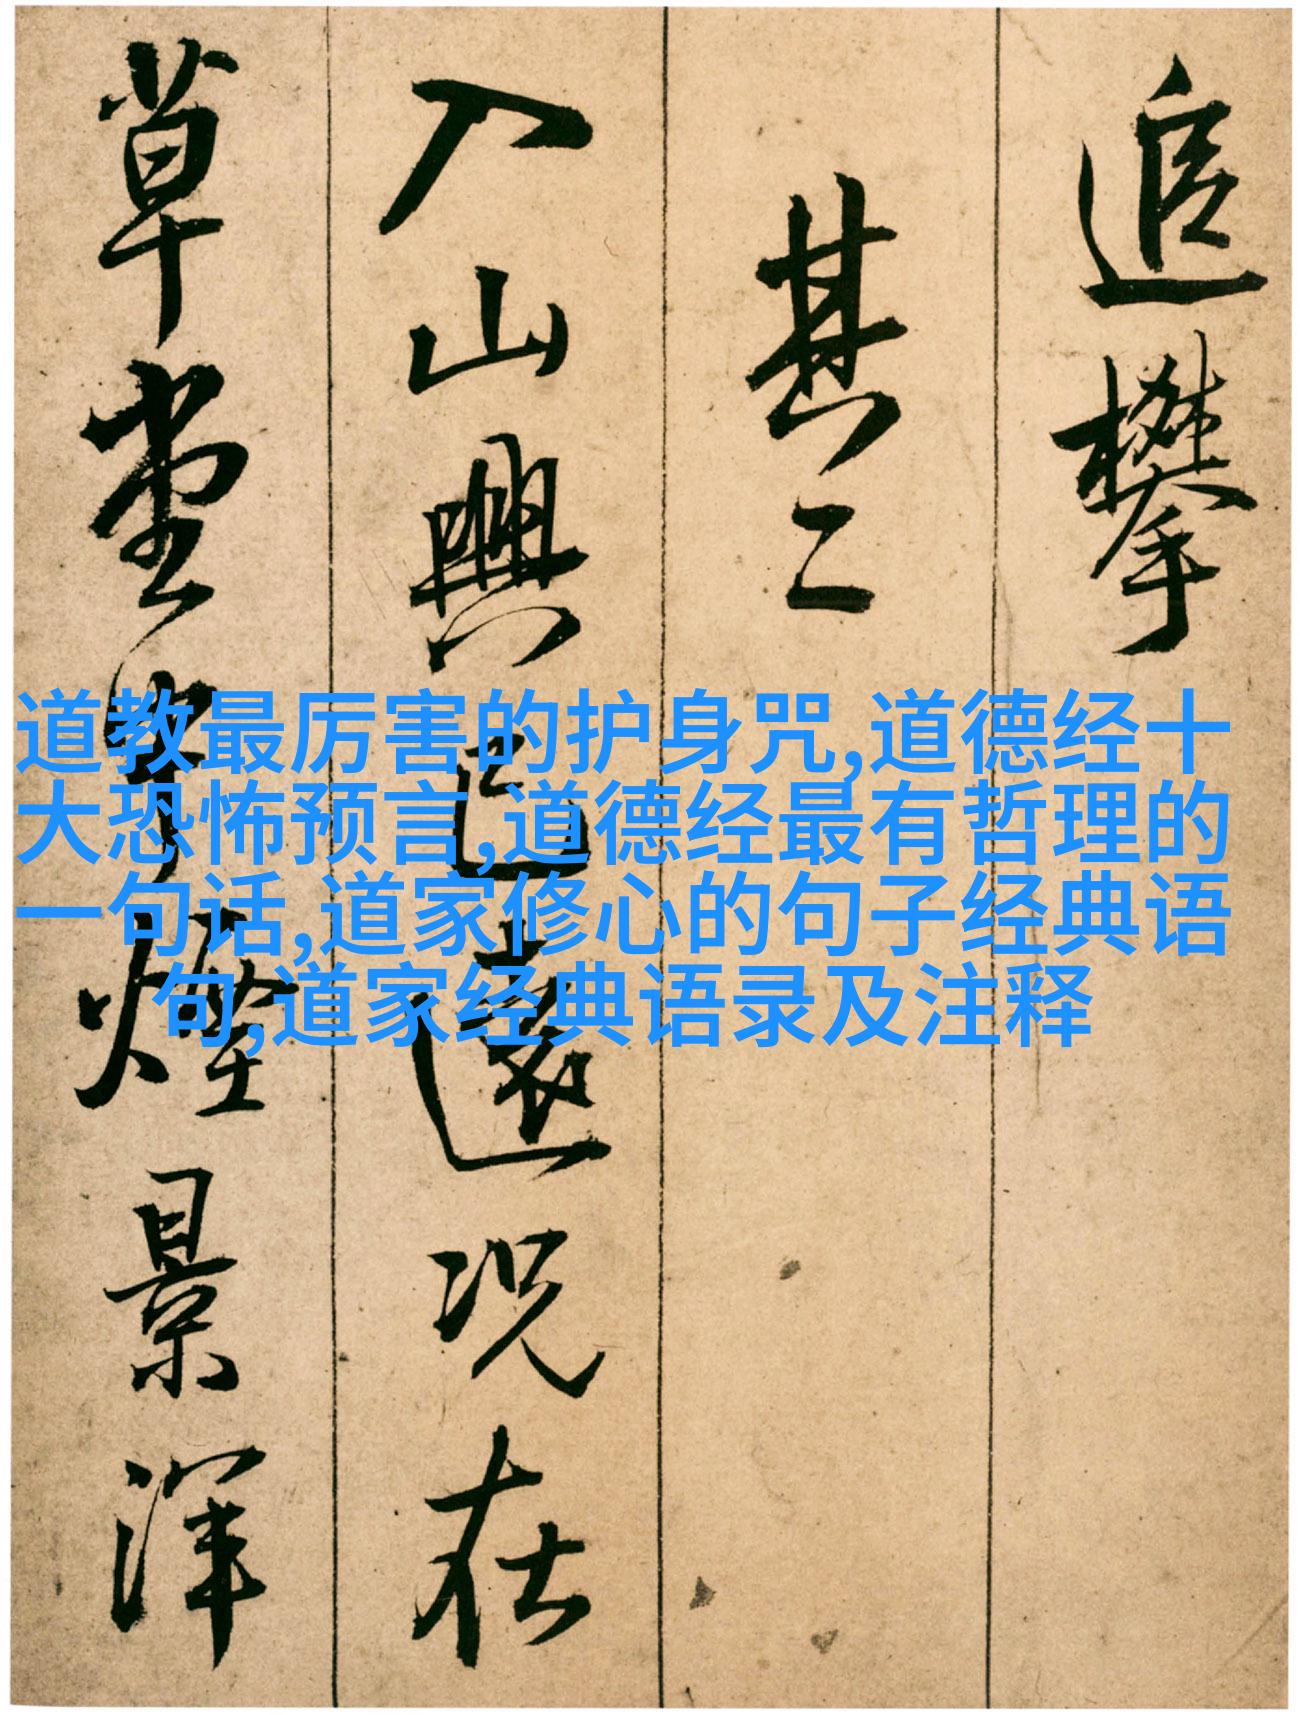 追攀
其二
入山興已遠況在
草堂煙景渾
道教最厉害的护身咒,道德经十
大恐怖预言,道德经最有哲理的
一句话,道家修心的句子经典语
句,道家经典语录及注释